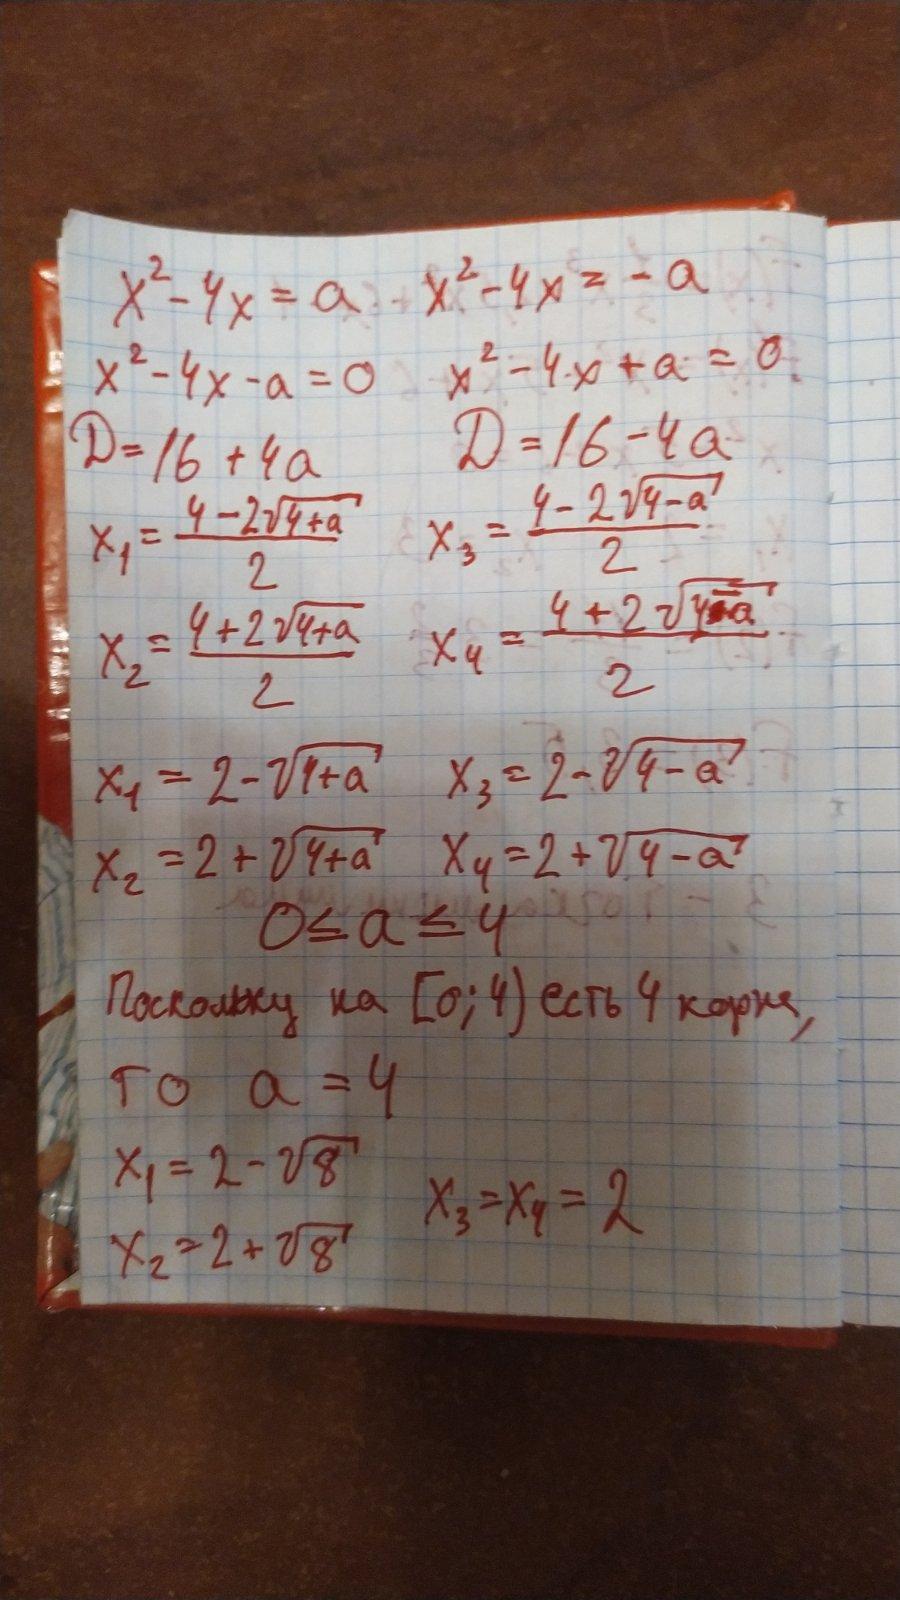 x² - 4x = a x² - 4x = - a
x² - 4x - a = 0 x² - 4x + a = 0
D = 16 + 4a D = 16 - 4a
x₁ = (4 - 2√(4+a))/2 x₃ = (4 - 2√(4-a))/2
x₂ = (4 + 2√(4+a))/2 x₄ = (4 + 2√(4-a))/2
x₁ = 2 - √(4+a) x₃ = 2 - √(4-a)
x₂ = 2 + √(4+a) x₄ = 2 + √(4-a)
0 ≤ a ≤ 4
Поскольку на [0; 4) есть 4 корня,
то a = 4
x₁ = 2 - √8
x₃ = x₄ = 2
x₂ = 2 + √8